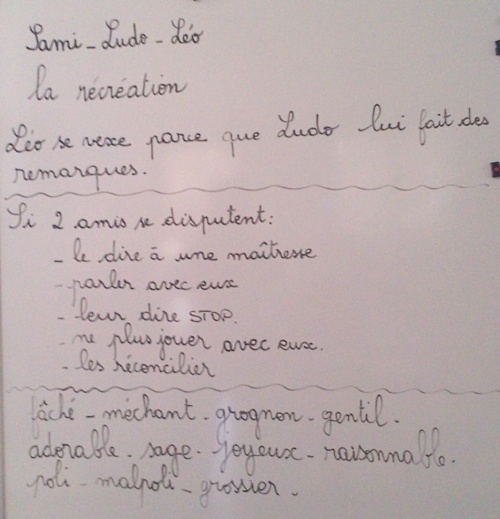 Sami - Ludo - Léo
la récréation
Léo se vexe parce que Ludo lui fait des
remarques.
Si 2 amis se disputent:
- le dire à une maîtresse
- parler avec eux
- leur dire STOP.
- ne plus jouer avec eux.
- les réconcilier
fâché - méchant - grognon - gentil.
adorable - sage - joyeux - raisonnable.
poli - malpoli - grossier.